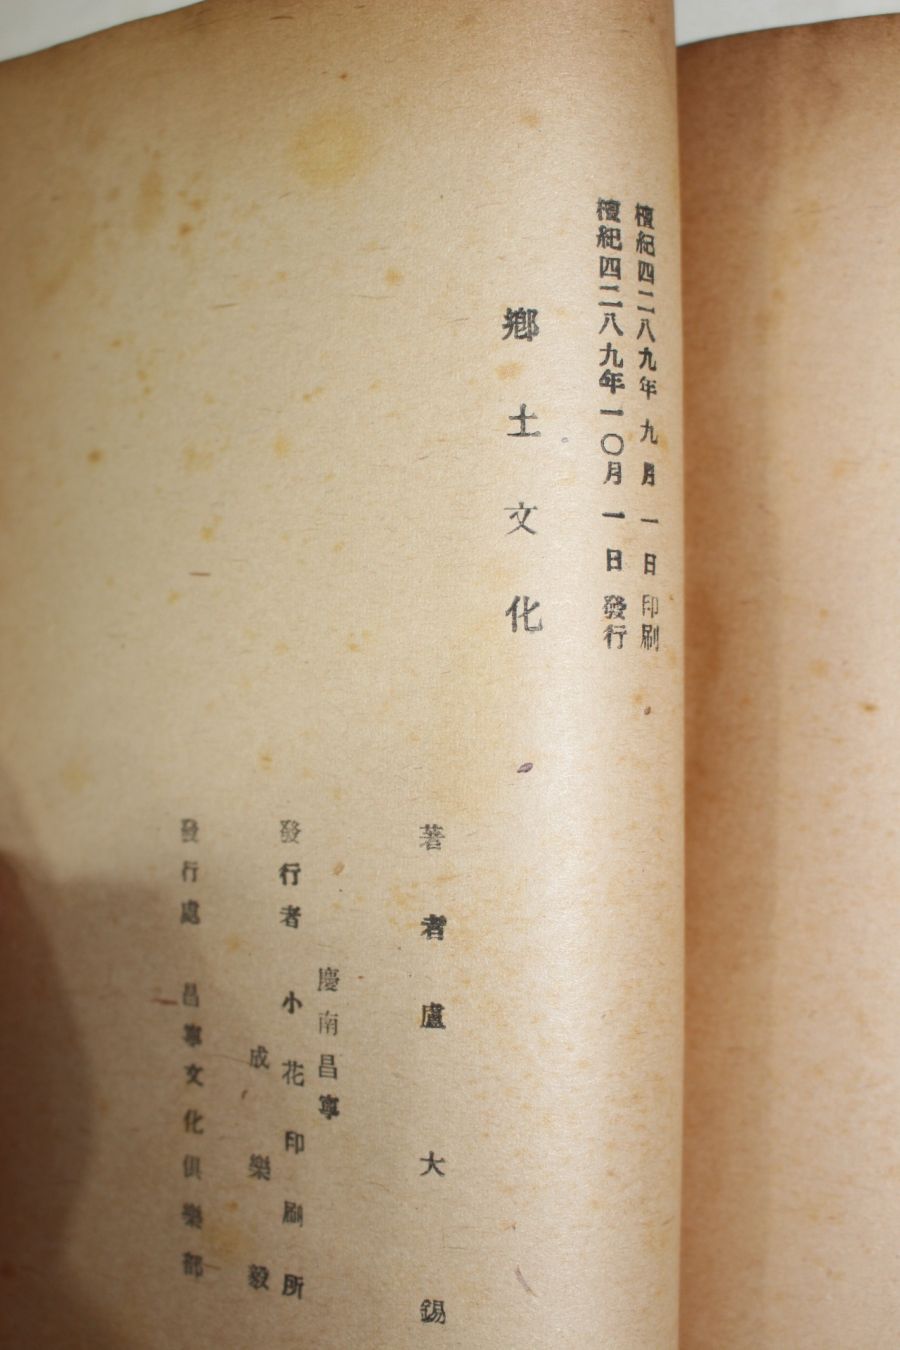 檀紀四二八九年九月一日印刷
檀紀四二八九年一〇月一日發行
鄕土文化
著者盧大錫
慶南昌寧
發行者小花印刷所
成樂毅
發行處昌寧文化俱樂部